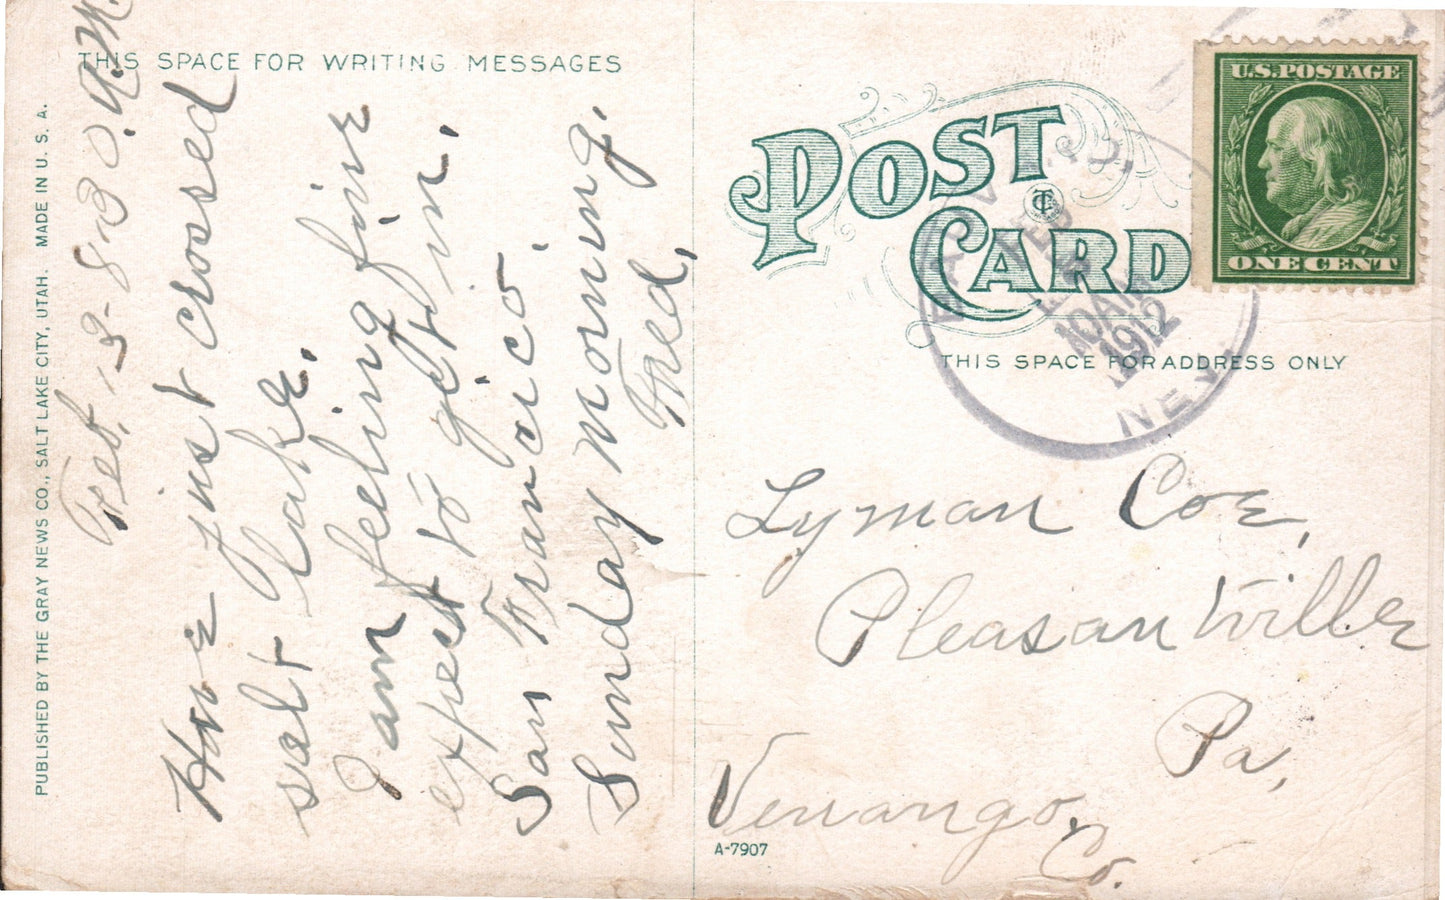 THIS SPACE FOR WRITING MESSAGES
PUBLISHED BY THE GRAY NEWS CO., SALT LAKE CITY, UTAH. MADE IN U. S. A.
Feb. 8:30 A.M.
Have just crossed
salt lake.
I am feeling fine
expect to get in
San Francico.
Sunday morning.
Fred,
POST
CARD
THIS SPACE FOR ADDRESS ONLY
U.S. POSTAGE
ONE CENT
FEB
10AM
1912
NEV
Lyman Coe,
Pleasantville
Pa,
Venango,
Co.
A-7907